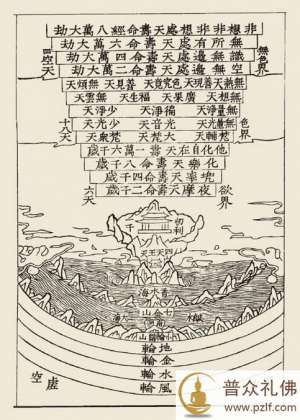 非想非非想處天壽命經八萬大劫
無所有處天壽六萬大劫
識無邊處天壽四萬大劫
空無邊處天壽命二萬大劫
無色界
四空天
無熱天 善現天 色究竟天 善見天 無煩天
無想天 廣果天 福生天 無雲天
無量淨天 徧淨天 少淨天
無量光天 光音天 少光天
梵輔天 大梵天 梵衆天
色界
十八天
他化自在天壽一萬六千歲
化樂天壽命八千歲
兜率天壽命四千歲
夜摩天壽命二千歲
欲界
六天
忉利
千
四天王天
大海
七金山
鹹水
地輪
金輪
水輪
風輪
虛空
普众礼佛
www.pzlf.com